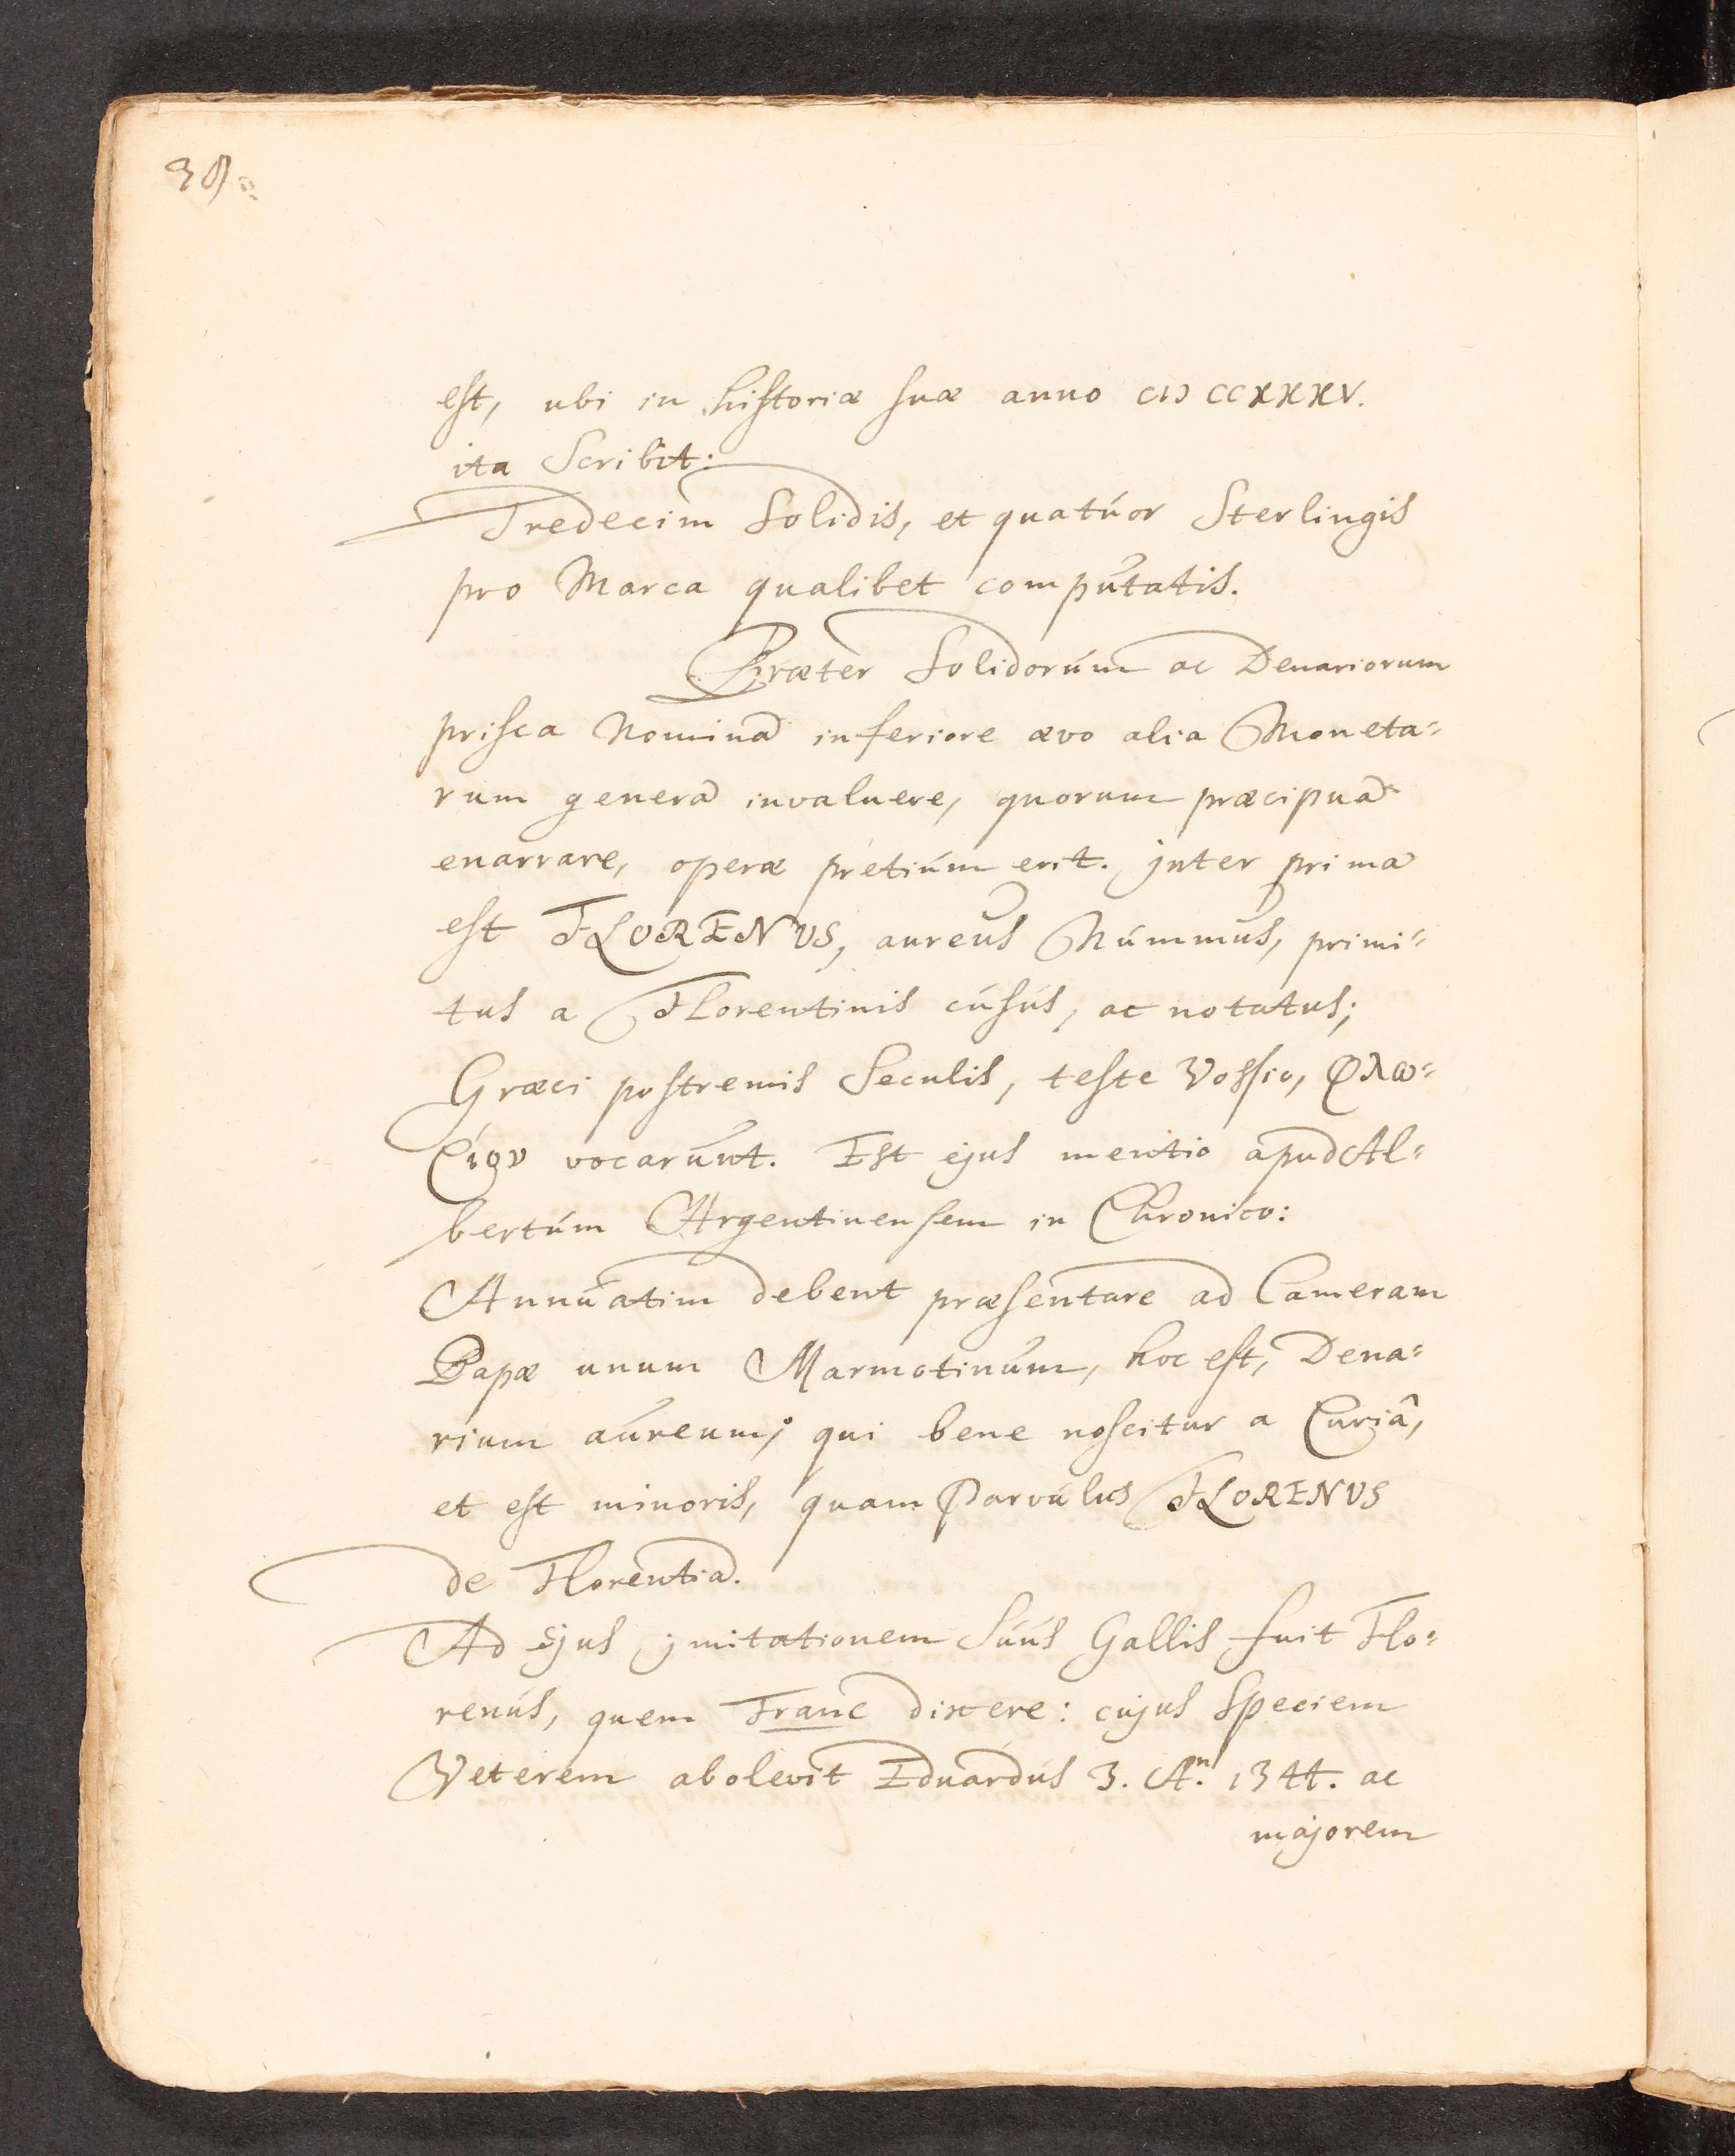 38.
est, ubi in historiæ suæ anno CIↃ CCXXXV.
ita Scribit:
Tredecim Solidis, et quatúor Sterlingis
pro Marca qualibet computatis.
Præter Solidorúm ac Denariorum
prisca Nomina inferiore ævo alia Moneta=
rum genera invaluere, quorum præcipua
enarrare, operæ pretiúm erit. jnter prima
est FLORENUS, aureus Númmus, primi=
tus a Florentinis cúsús, ac notatus;
Græci postremis Seculis, teste Vossio, Φλω=
ρίον vocarunt. Est ejus mentio apud Al=
bertúm Argentinensem in Chronico:
Annuatim debent præsentare ad Cameram
Papæ unum Marmotinum, hoc est, Dena=
rium aureum; qui bene noscitur a Curiâ,
et est minoris, quam Parvúlus FLORENUS
de Florentia.
Ad ejus jmitationem Súús Gallis fuit Flo=
renús, quem Franc dixere: cujus Speciem
Veterem abolevit Eduardús 3. Aⁿ. 1344. ac
majorem